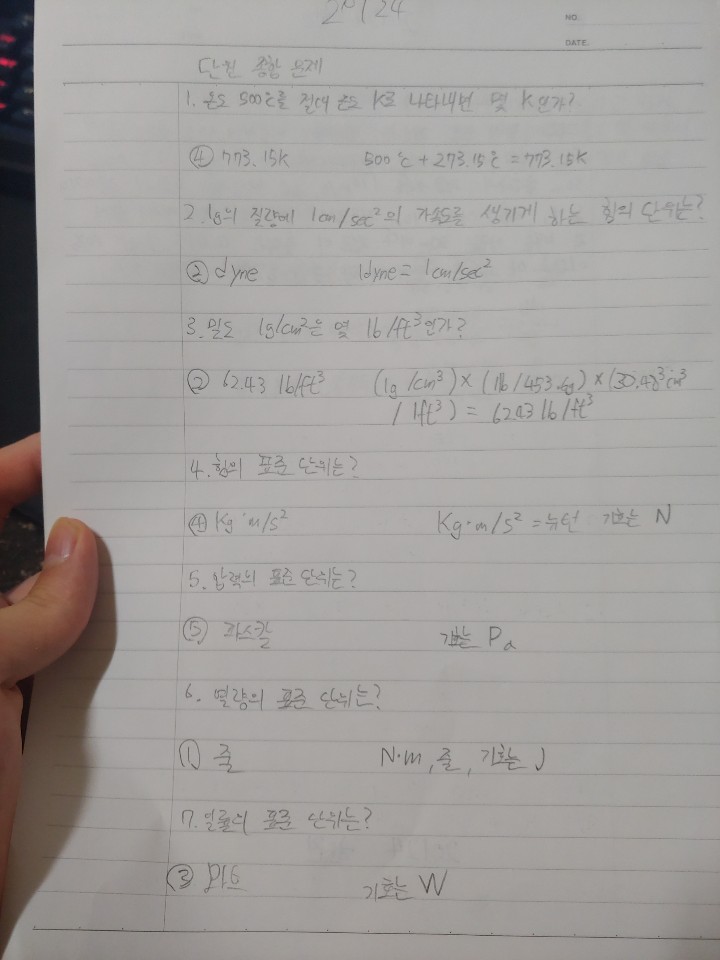 24
NO.
DATE.
단원 종합 문제
1. 온도 500℃를 절대 온도 K로 나타내면 몇 K인가?
④ 773.15K 500℃ + 273.15℃ = 773.15K
2. 1g의 질량에 1cm/sec²의 가속도를 생기게 하는 힘의 단위는?
② dyne 1dyne = 1cm/sec²
3. 밀도 1g/cm²은 몇 lb/ft³인가?
② 62.43 lb/ft³ (1g/cm³) × (1lb/453.6g) × (30.48³cm³
/ 1ft³) = 62.43 lb/ft³
4. 힘의 표준 단위는?
④ Kg·m/s² Kg·m/s² = 뉴턴 기호는 N
5. 압력의 표준 단위는?
⑤ 파스칼 기호는 Pa
6. 열량의 표준 단위는?
① 줄 N·m, 줄, 기호는 J
7. 일률의 표준 단위는?
③ 와트 기호는 W